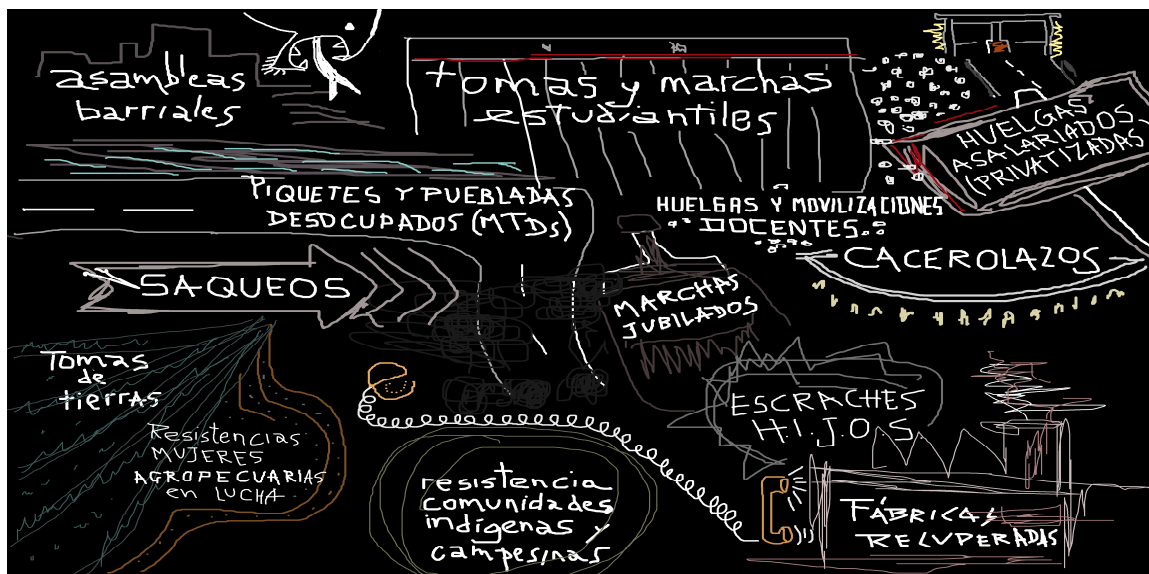 asambleas
barriales
tomas y marchas
estudiantiles
HUELGAS
ASALARIADOS
(PRIVATIZADAS)
PIQUETES Y PUEBLADAS
DESOCUPADOS (MTDs)
HUELGAS Y MOVILIZACIONES
DOCENTES
CACEROLAZOS
SAQUEOS
MARCHAS
JUBILADOS
Tomas
de
tierras
ESCRACHES
H.I.J.O.S
Resistencias
MUJERES
AGROPECUARIAS
en LUCHA
resistencia
comunidades
indígenas y
campesinas
FÁBRICAS
RECUPERADAS